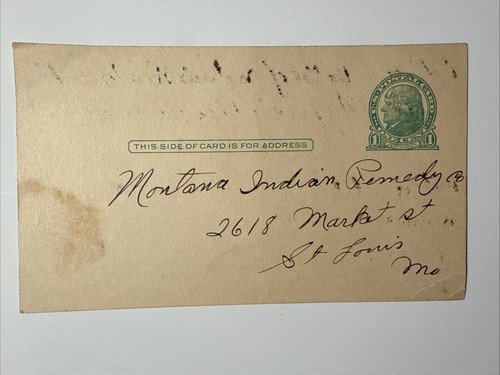 U.S. POSTAL CARD
1 1
ONE CENT
THIS SIDE OF CARD IS FOR ADDRESS
Montana Indian Remedy Co
2618 Market st
St Louis
Mo